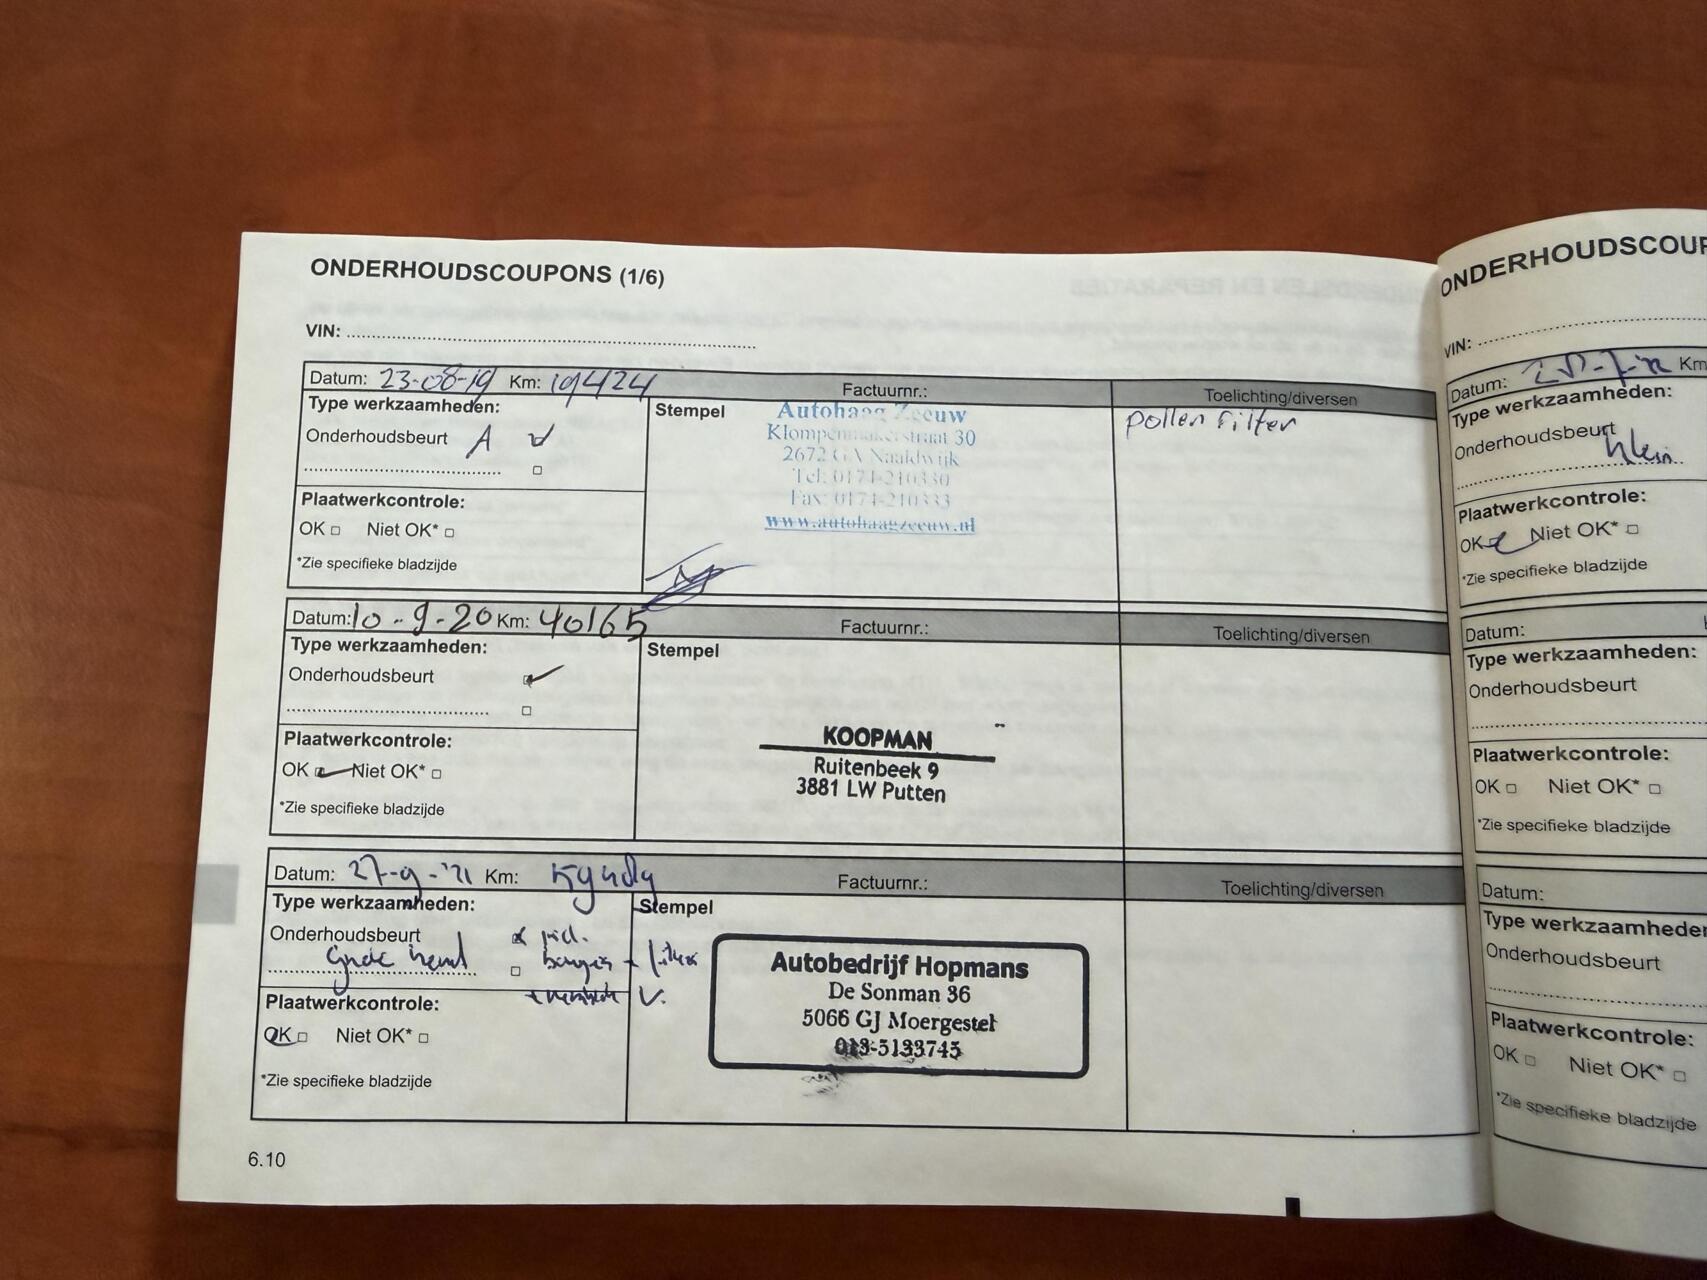 ONDERHOUDSCOUPONS (1/6)
VIN:
Datum: 23-08-19 Km: 19424 Factuurnr.: Toelichting/diversen
Type werkzaamheden:
Onderhoudsbeurt A
Plaatwerkcontrole:
OK Niet OK*
*Zie specifieke bladzijde
Stempel
Autohaag Zeeuw
Klompenmakerstraat 30
2672 GA Naaldwijk
Tel: 0174-210330
Fax: 0174-210333
www.autohaagzeeuw.nl
Pollen Filter
Datum: 10-9-20 Km: 40165 Factuurnr.: Toelichting/diversen
Type werkzaamheden:
Onderhoudsbeurt
Plaatwerkcontrole:
OK Niet OK*
*Zie specifieke bladzijde
Stempel
KOOPMAN
Ruitenbeek 9
3881 LW Putten
Datum: 27-9-'21 Km: Factuurnr.: Toelichting/diversen
Type werkzaamheden:
Onderhoudsbeurt
Plaatwerkcontrole:
OK Niet OK*
*Zie specifieke bladzijde
Stempel
Autobedrijf Hopmans
De Sonman 36
5066 GJ Moergestel
013-5133745
6.10
ONDERHOUDSCOUP
VIN:
Datum: Km
Type werkzaamheden:
Onderhoudsbeurt
klein
Plaatwerkcontrole:
OK Niet OK*
*Zie specifieke bladzijde
Datum:
Type werkzaamheden:
Onderhoudsbeurt
Plaatwerkcontrole:
OK Niet OK*
*Zie specifieke bladzijde
Datum:
Type werkzaamheden
Onderhoudsbeurt
Plaatwerkcontrole:
OK Niet OK*
*Zie specifieke bladzijde